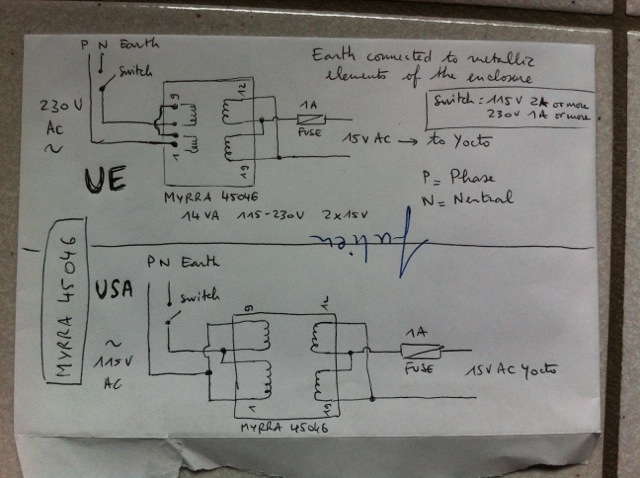 P N Earth
Switch
230V
AC
~
UE
9
12
1
19
1A
FUSE
15V AC → to Yocto
MYRRA 45046
14 VA 115-230V 2x15V
Earth connected to metallic
elements of the enclosure
Switch = 115V 2A or more
230V 1A or more
P = Phase
N = Neutral
Julien
MYRRA 45046
USA
P N Earth
Switch
~
115V
AC
9
12
1
19
1A
FUSE
15V AC Yocto
MYRRA 45046